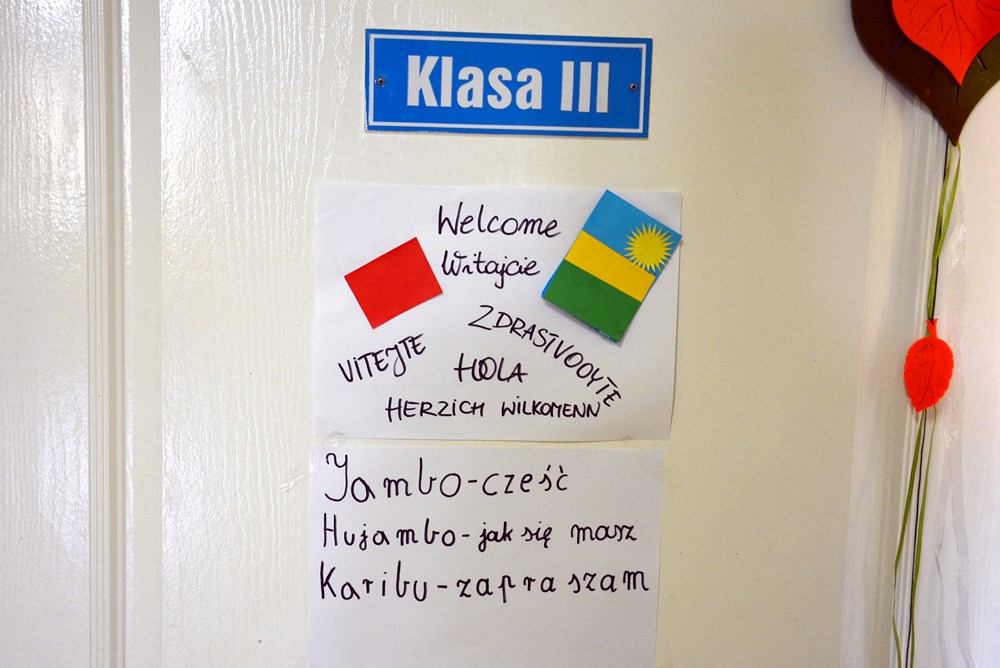 Klasa III
Welcome
Witajcie
ZDRASTVOOYTE
VITEJTE
HOLA
HERZICH WILKOMENN
Jambo-cześć
Hujambo-jak się masz
Karibu-zapraszam